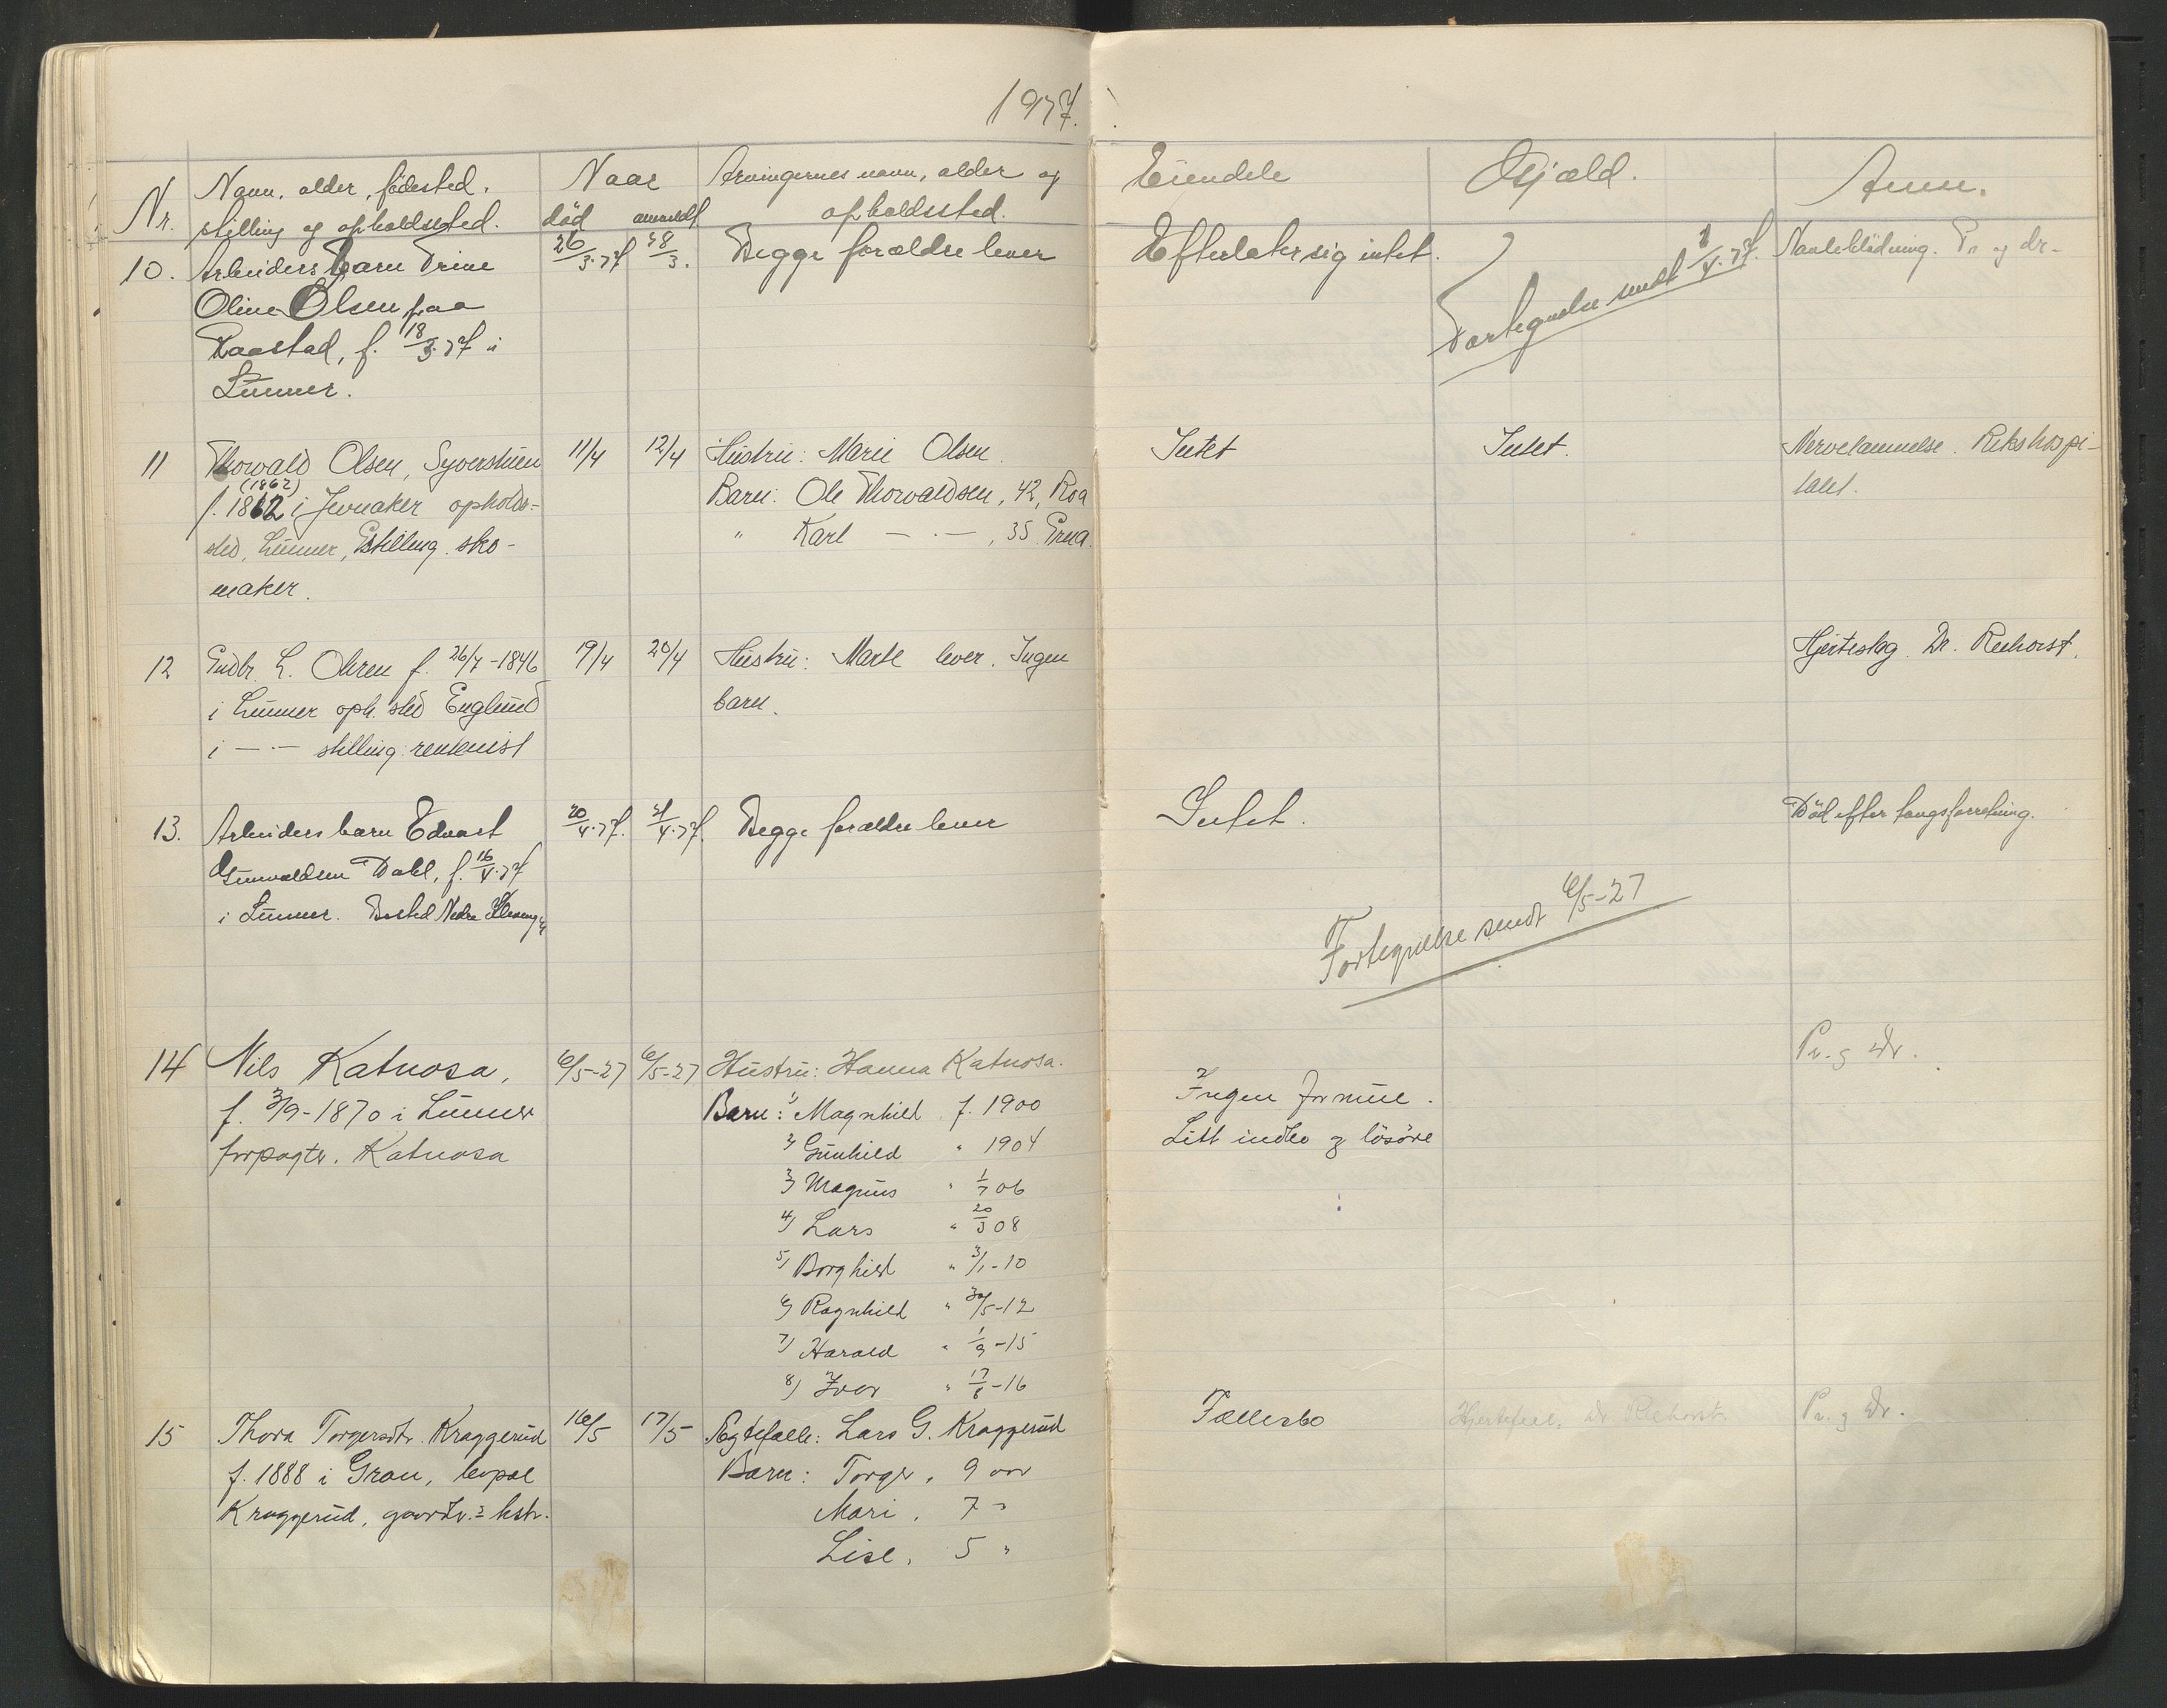 1927.
Nr.
Navn, alder, födested,
stilling og opholdssted.
Naar
död anmeldt
Arvingernes navn, alder og
opholdssted.
Eiendele
Gjæld.
Anm.
10. Arbeiders barn Trine
Oline Olsen paa
Raastad, f. 18/3.27 i
Lunner.
26/3.27 28/3.
Begge forældre lever
Efterlater sig intet.
Fortegnelse sendt 1/4.27.
Navleblödning. Pr. og dr.
11 Thorvald Olsen, Syverstuen
(1862)
f. 1862 i Jevnaker opholds-
sted, Lunner, Stilling sko-
maker.
11/4 12/4
Hustru: Marie Olsen.
Barn: Ole Thorvaldsen, 42, Roa
" Karl — · — , 35 Grua.
Intet
Intet.
Nervelammelse. Rikshospi-
talet.
12 Gudbr. L. Ohren f. 26/7-1846
i Lunner oph. sted Englund
i — · — stilling: rentenist
19/4 20/4
Hustru: Marte lever. Ingen
barn.
Hjerteslag. Dr. Reehorst.
13. Arbeiders barn Edvart
Gunvaldsen Dahl, f. 16/4.27
i Lunner. Bosted Nedre
20/4.27. 21/4.27.
Begge forældre lever
Intet.
Död efter tangforretning.
Fortegnelse sendt 6/5-27
14 Nils Katnosa,
f. 3/9-1870 i Lunner
forpagter. Katnosa
6/5-27 6/5-27
Hustru: Hanna Katnosa.
Barn: 1) Magnhild f. 1900
2) Gunhild " 1904
3) Magnus " 1/7 06
4) Lars " 20/3 08
5) Borghild " 3/1-10
6) Ragnhild " 30/5-12
7) Harald " 1/9-15
8) Ivar " 17/8-16
Ingen formue.
Litt indbo og lösöre
Pr. og Dr.
15 Thora Torgersdtr. Kraggerud
f. 1888 i Gran, bopæl
Kraggerud, gaardbr.s hstr.
16/5 17/5
Ægtefælle: Lars G. Kraggerud
Barn: Torger, 9 aar
Mari, 7 "
Lise, 5 "
Fællesbo
Hjertefeil. Dr. Reehorst
Pr. og Dr.